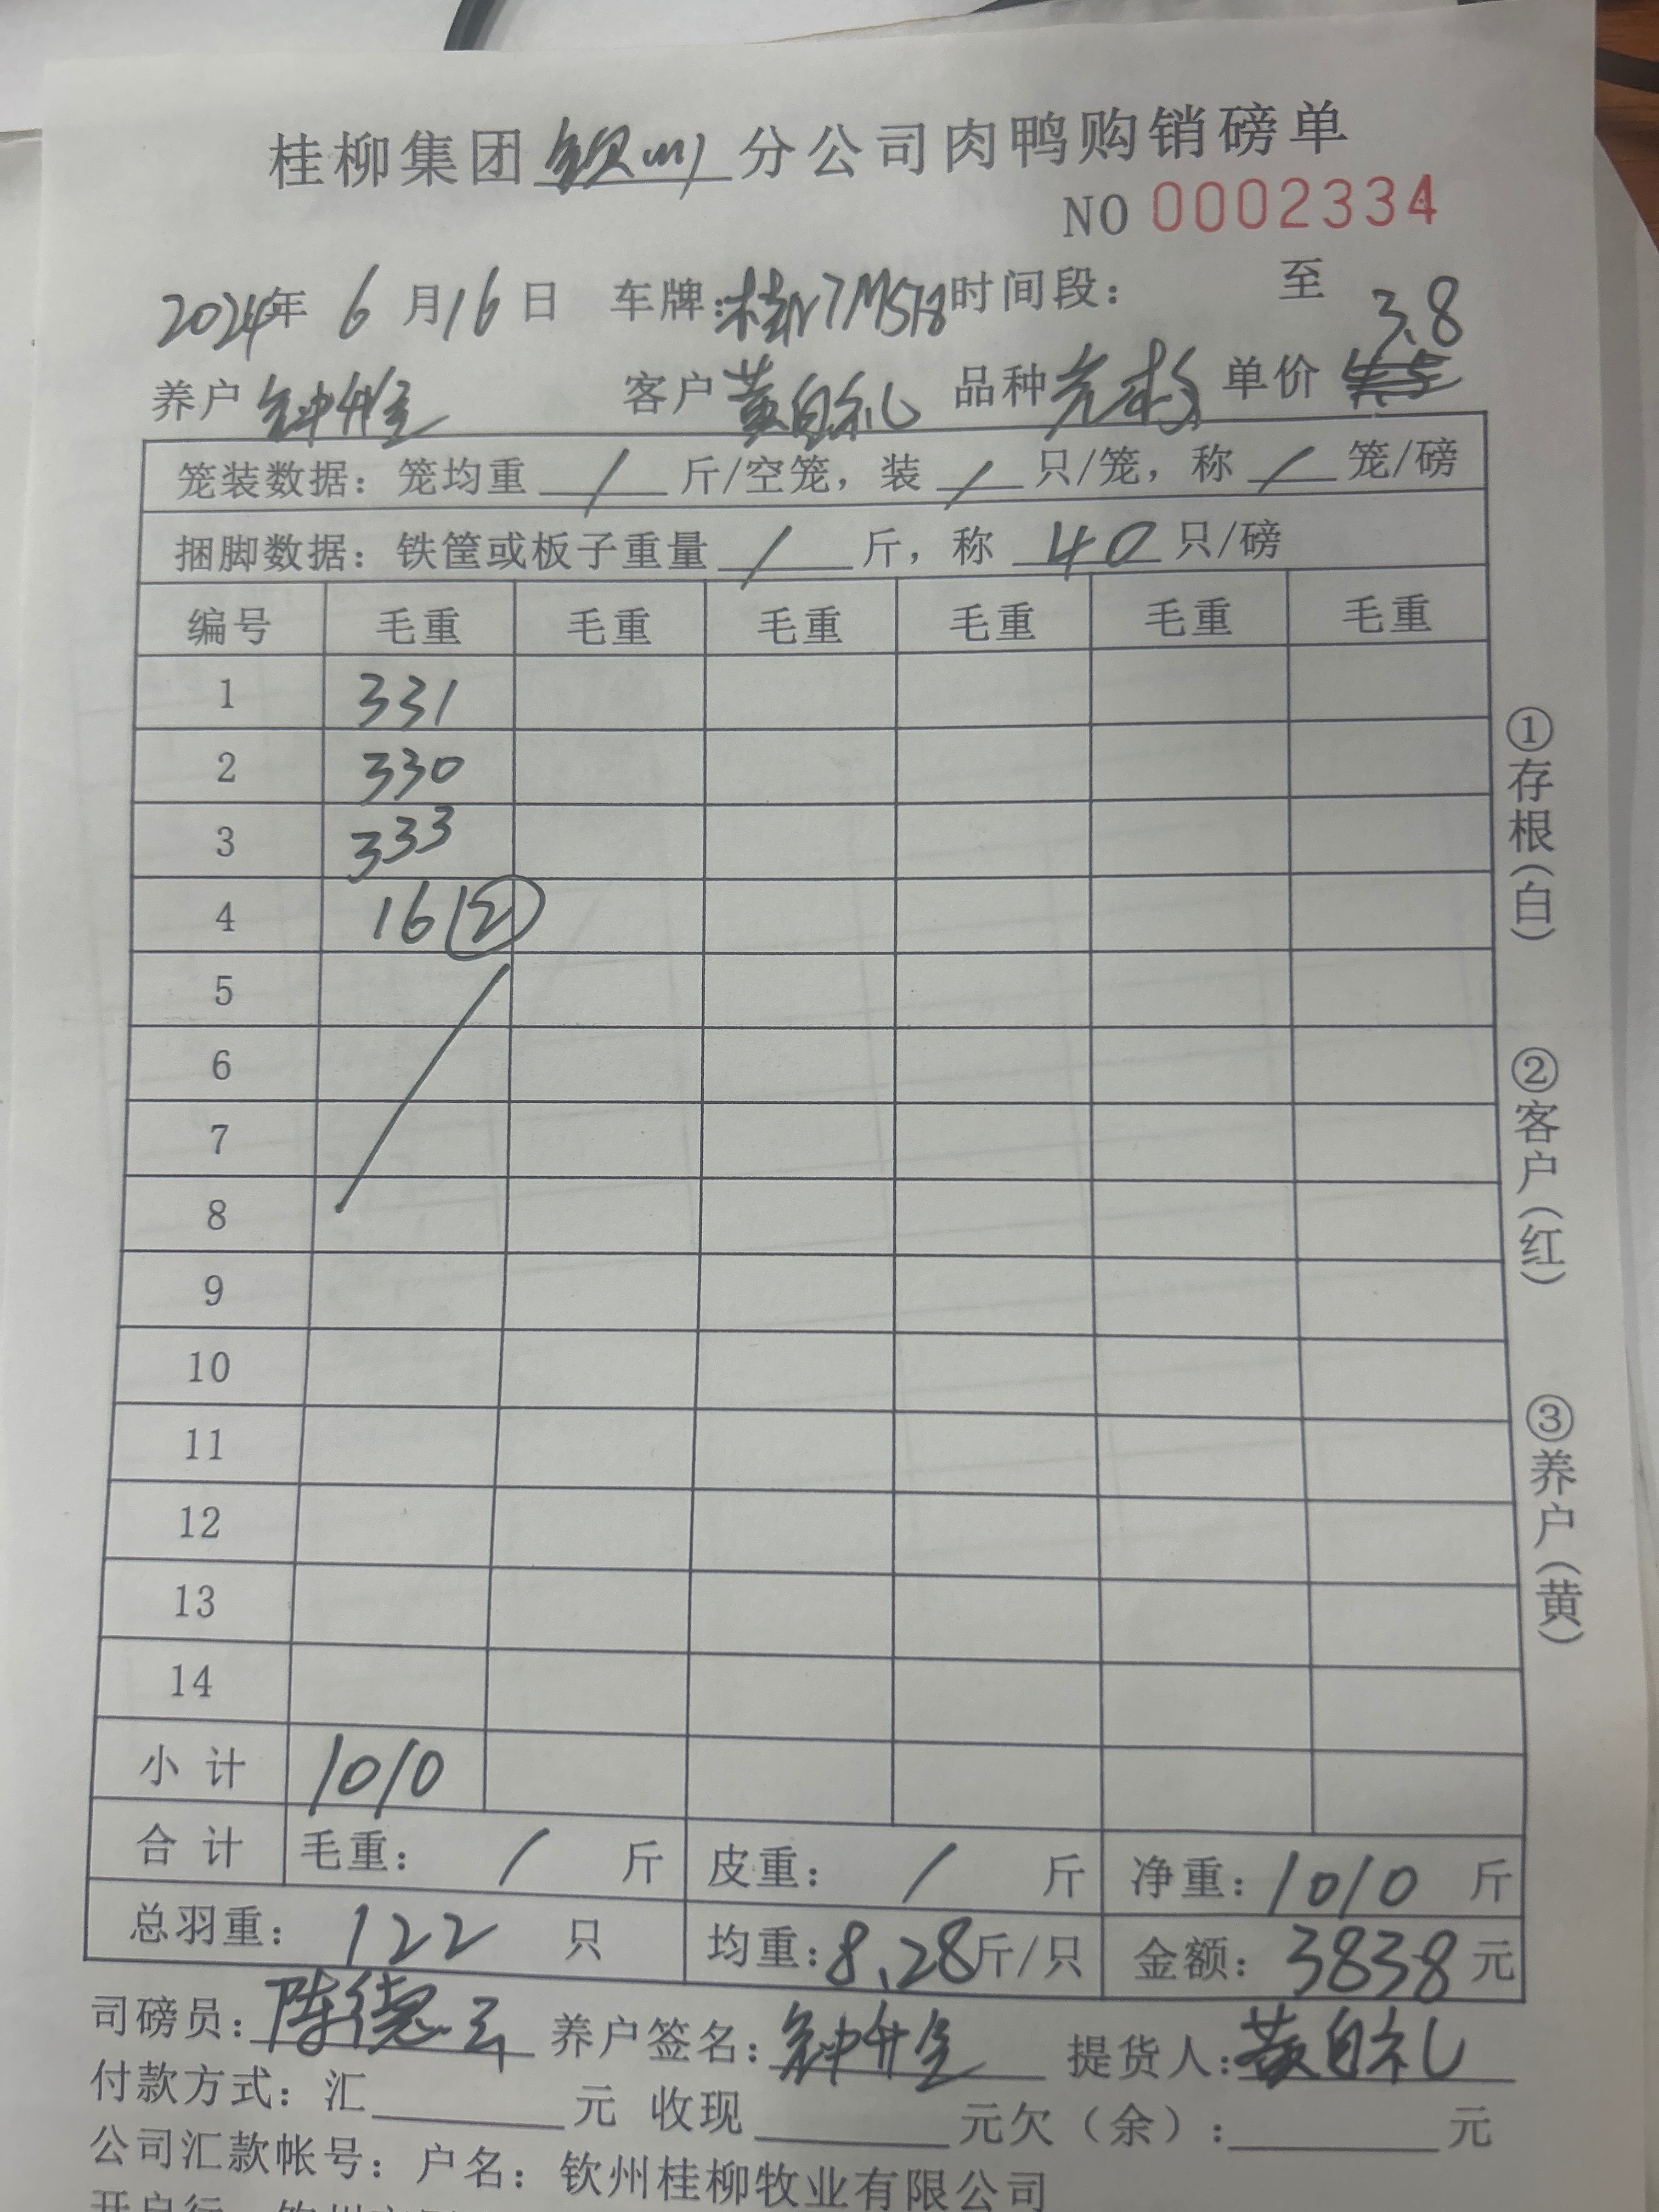 桂柳集团钦州分公司肉鸭购销磅单
NO 0002334
2024年 6月16日 车牌:桂N7M518时间段: 至
3.8
养户 钟升全 客户 黄自礼 品种 单价
笼装数据:笼均重 / 斤/空笼,装 / 只/笼,称 / 笼/磅
捆脚数据:铁筐或板子重量 / 斤,称 40 只/磅
编号 毛重 毛重 毛重 毛重 毛重 毛重
1 331
2 330
3 333
4 16 (2)
5
6
7
8
9
10
11
12
13
14
小计 1010
合计 毛重: / 斤 皮重: / 斤 净重:1010 斤
总羽重: 122 只 均重:8.28斤/只 金额:3838元
司磅员:陈德云 养户签名:钟升全 提货人:黄自礼
付款方式:汇 元 收现 元欠(余): 元
公司汇款帐号:户名:钦州桂柳牧业有限公司
开户行
①存根(白)
②客户(红)
③养户(黄)